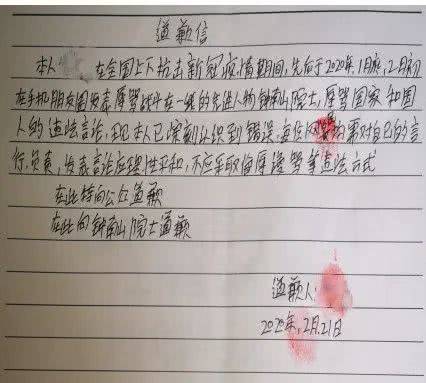 道歉信
本人 在全国上下抗击新冠疫情期间，先后于2020年1月底，2月初
在手机朋友圈发表辱骂战斗在一线的先进人物钟南山院士，辱骂国家和国
人的违法言论，现本人已深刻认识到错误，每位网 均需对自己的言
行负责，发表言论应理性平和，不应采取侮辱谩骂等违法方式
在此特向公众道歉
在此向钟南山院士道歉
道歉人：
2020年，2月.21日